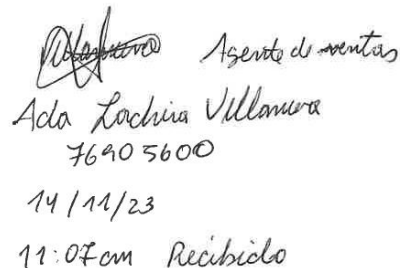 Agente de ventas
Ada Lachira Villanueva
76905600
14/11/23
11:07am Recibido